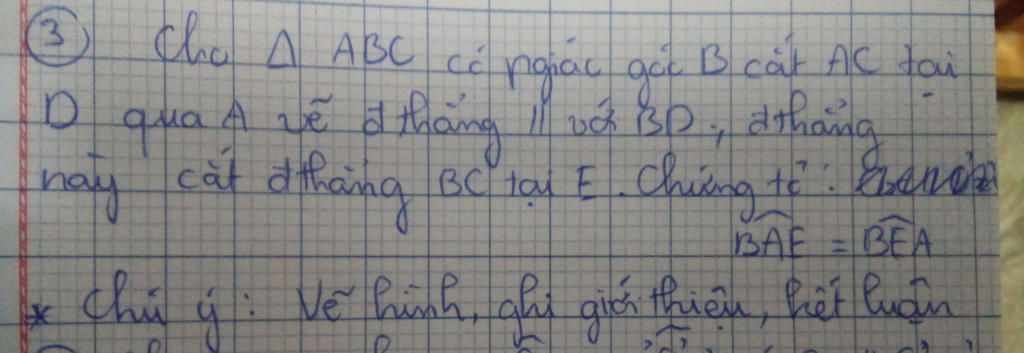 ③ Cho Δ ABC có pgiác góc B cắt AC tại
D qua A vẽ đthẳng // với BD, đthẳng
này cắt đthẳng BC tại E. Chứng tỏ:
BAE = BEA
* Chú ý: Vẽ hình, ghi giới thiệu, kết luận